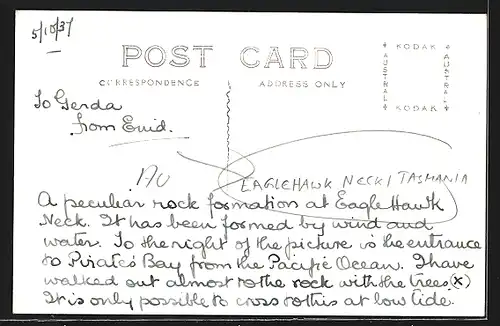 5/10/37
POST CARD
CORRESPONDENCE
ADDRESS ONLY
KODAK
AUSTRAL
AUSTRAL
KODAK
To Gerda
from Enid.
EAGLEHAWK NECK / TASMANIA
A peculiar rock formation at Eagle Hawk
Neck. It has been formed by wind and
water. To the right of the picture is the entrance
to Pirates Bay from the Pacific Ocean. I have
walked out almost to the rock with the trees (x)
It is only possible to cross to this at low tide.